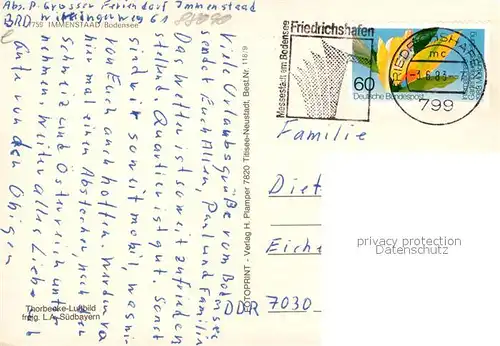 Abs. P. Grosser Feriendorf Immenstaad
BRD Wittingerweg 61
7759 IMMENSTAAD Bodensee
Viel Urlaubsgrüße vom Bodensee
sendet Euch Allen, Paul und Familie
Das Wetter ist soweit zufrieden
stellend Quartier ist gut. Sonst
sind wir soweit mobil, was wir
von Euch auch hoffen. Werden von
hier mal einen Abstecher, nach der
Schweiz und Österreich unter
nehmen. Weiter alles Liebe u.
Gute von den Obigen
Thorbecke-Luftbild
freig. L.A. Südbayern
FOTOPRINT - Verlag H. Plamper 7820 Titisee-Neustadt, Best.Nr. 118/9
Friedrichshafen
Messestadt am Bodensee
60
Deutsche Bundespost
FRIEDRICHSHAFEN
mc
-1.6.83
799
Familie
Diet
Eiche
DDR 7030
privacy protection
Datenschutz